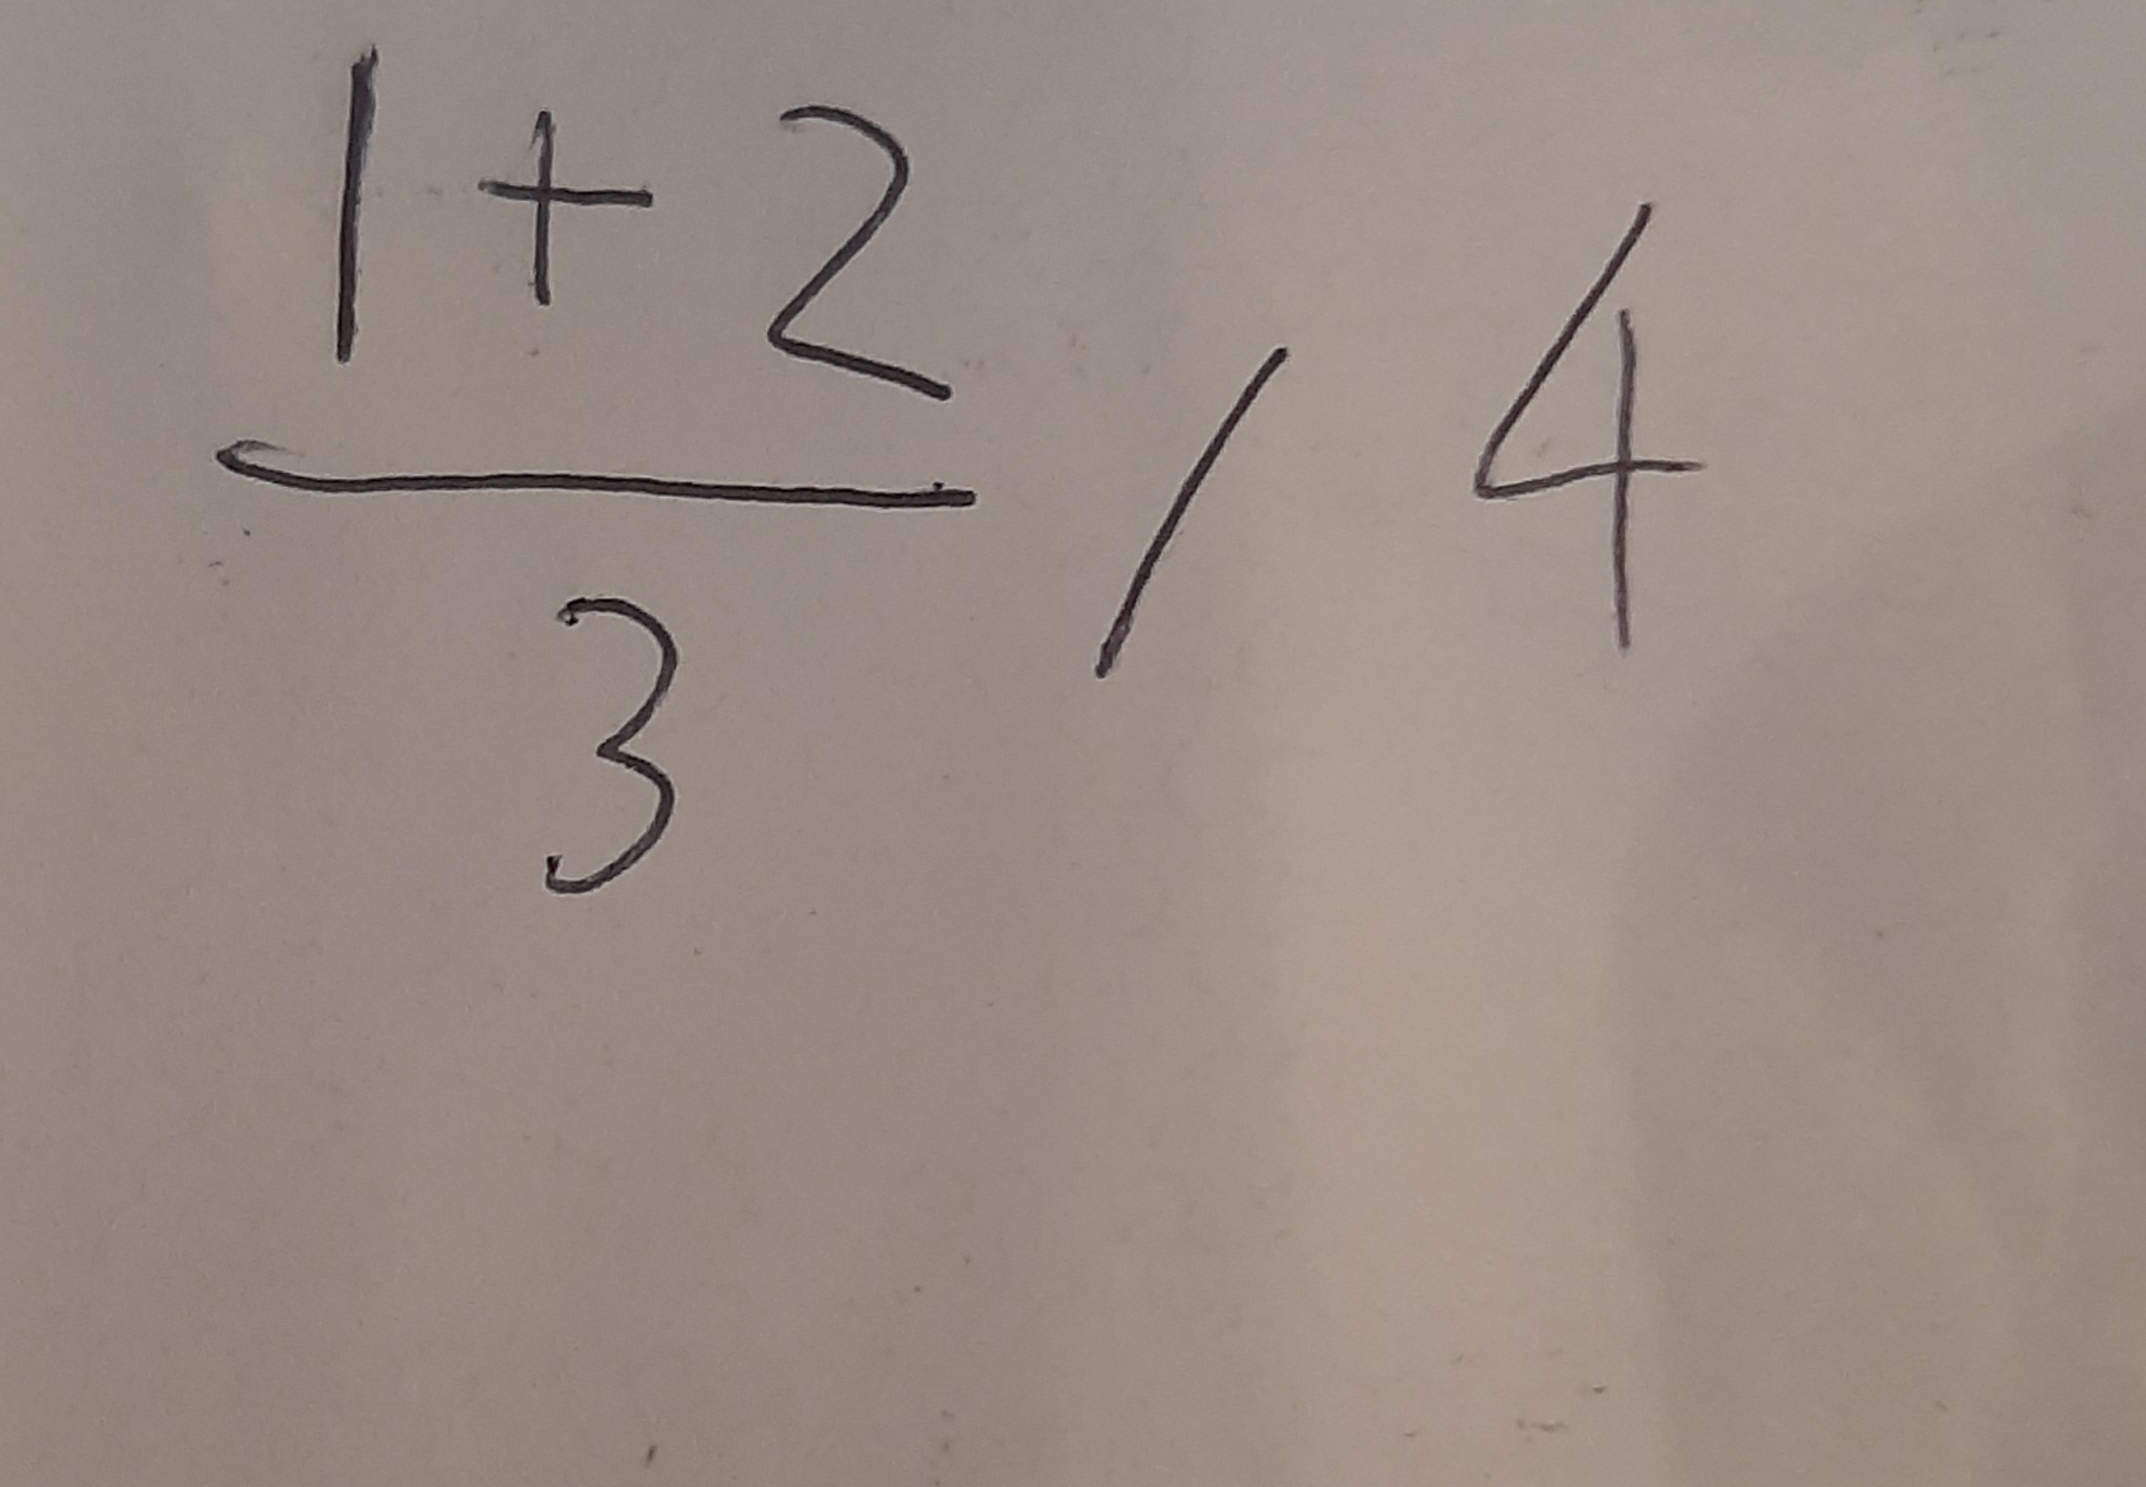 1 + 2
3
/ 4